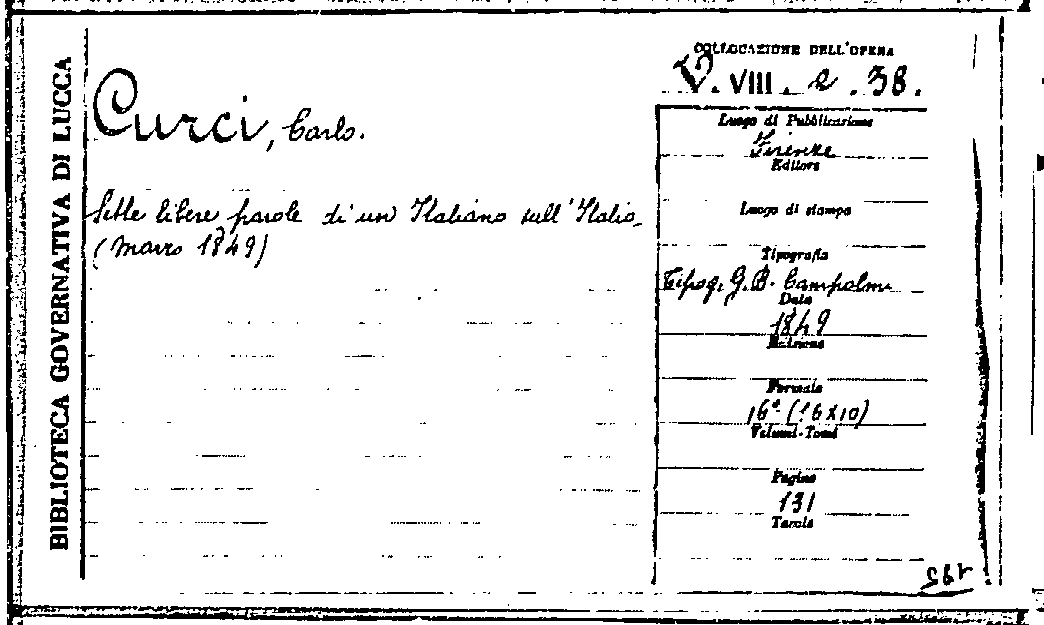 BIBLIOTECA GOVERNATIVA DI LUCCA
Curci, Carlo.
Sette libere parole di un Italiano sull'Italia
(Marzo 1849)
COLLOCAZIONE DELL'OPERA
VIII. 2. 38.
Luogo di Pubblicazione
Firenze
Editore
Luogo di stampa
Tipografia
Tipog. G.B. Campolmi
Data
1849
Edizione
Formato
16° (16x10)
Volumi-Tomi
Pagine
131
Tavole
195